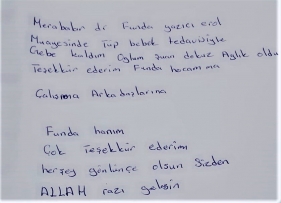 Merabalar dr Funda yazıcı erol
Muayesinde Tüp bebek tedavisiyle
Gebe kaldım Oğlum şuan dokuz Aylık oldu
Teşekkür ederim Funda hocamma
Çalışma Arkadaşlarına
Funda hanım
Çok Teşekkür ederim
herşey gönlünçe olsun Sizden
ALLAH razı gelsin